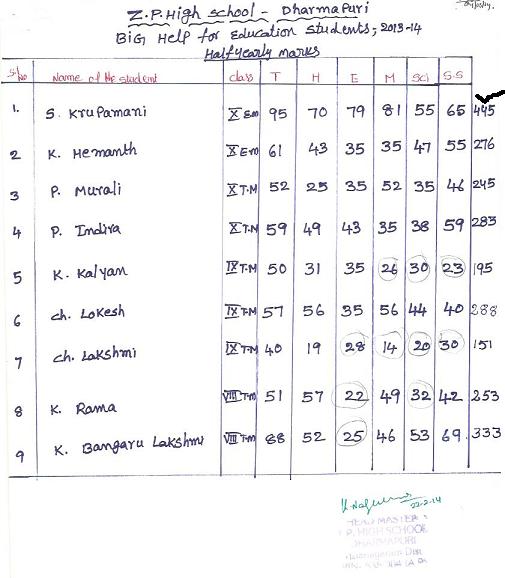 Z.P. High school - Dharmapuri
BiG Help for Education Students; 2013-14
Half yearly marks
S.No Name of the student class T H E M Sci S.S
1. S. Krupamani X Em 95 70 79 81 55 65 445
2 K. Hemanth X Em 61 43 35 35 47 55 276
3 P. Murali X T.M 52 25 35 52 35 46 245
4 P. Indira X T.M 59 49 43 35 38 59 283
5 K. Kalyan IX T.M 50 31 35 26 30 23 195
6 ch. Lokesh IX T.M 57 56 35 56 44 40 288
7 ch. Lakshmi IX T.M 40 19 28 14 20 30 151
8 K. Rama VIII T.M 51 57 22 49 32 42 253
9 K. Bangaru Lakshmi VIII T.M 88 52 25 46 53 69 333
22-2-14
HEAD MASTER
Z.P. HIGH SCHOOL
DHARMAPURI